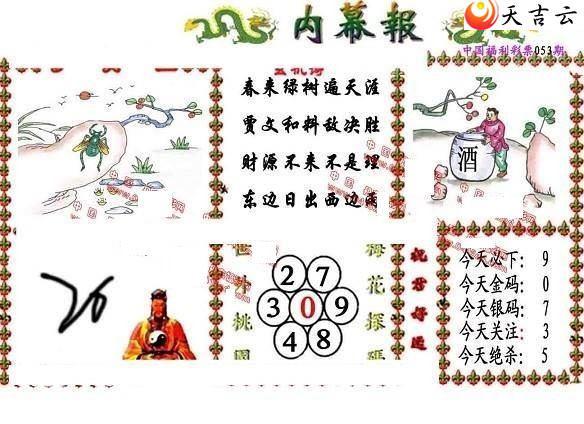 内幕報
天吉云
中国福利彩票053期
春来绿树遍天涯
贾文和料敌决胜
财源不来不是理
东边日出西边雨
酒
桃園
梅花探碼
祝君好运
今天必下：9
今天金码：0
今天银码：7
今天关注：3
今天绝杀：5
2 7
3 0 9
4 8